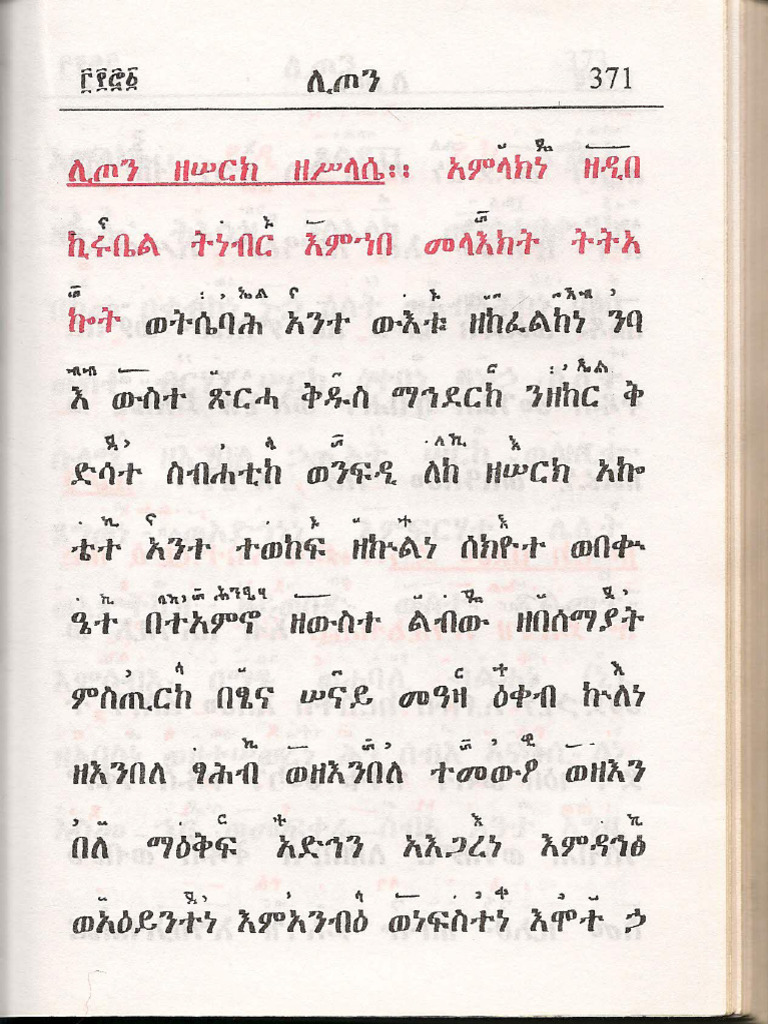 ፫፻፸፩ ሊጦን 371
ሊጦን ዘሠርክ ዘሥላሴ፡፡ አምላክነ ዘዲበ
ኪሩቤል ትነብር እምኀበ መላእክት ትትአ
ኰት ወትሴባሕ አንተ ውእቱ ዘከፈልከነ ንባ
እ ውስተ ጽርሓ ቅዱስ ማኅደርከ ንዘከር ቅ
ድሳተ ስብሐቲከ ወንፍዲ ለከ ዘሠርክ አኰ
ቴተ አንተ ተወከፍ ዘኵልነ ሰክዮተ ወበቍ
ዔተ በተአምኖ ዘውስተ ልብው ዘበሰማያት
ምስጢርከ በፄና ሠናይ መዓዛ ዕቀብ ኵለነ
ዘእንበለ ፃሕብ ወዘእንበለ ተመውዖ ወዘእን
በለ ማዕቅፍ አድኅን አእጋረነ እምዳኅፅ
ወአዕይንተነ እምአንብዕ ወነፍስተነ እሞተ ኃ